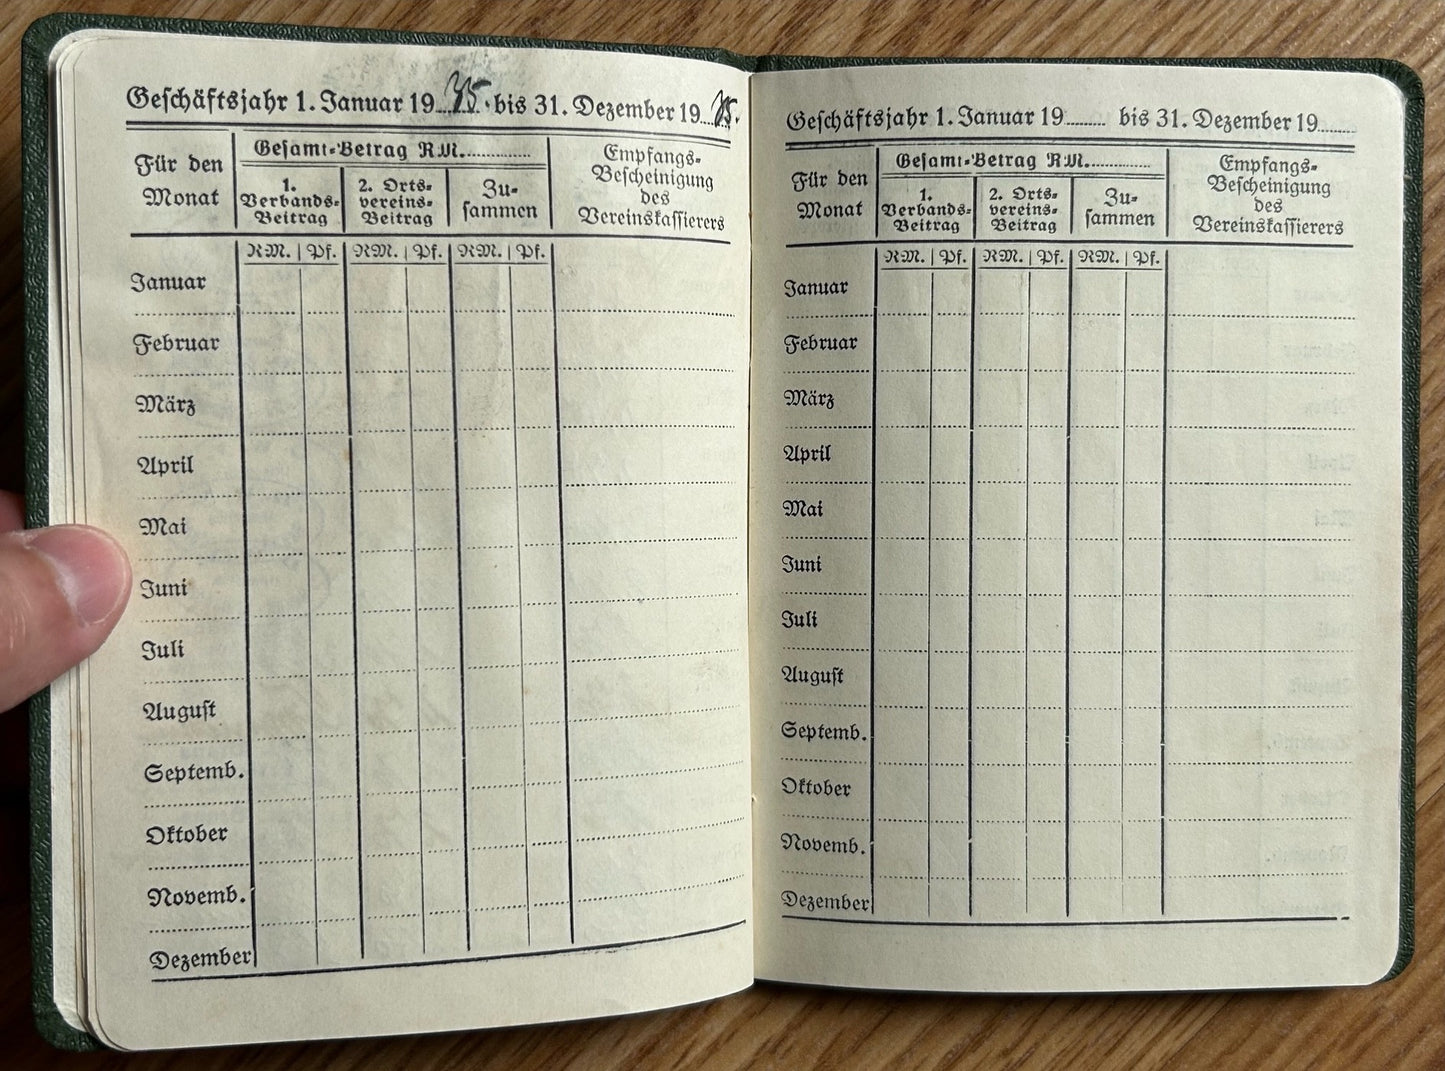 Geschäftsjahr 1. Januar 19 35. bis 31. Dezember 19 35.
Für den Monat
Gesamt-Betrag RM.
1. Verbands-Beitrag
2. Ortsvereins-Beitrag
Zusammen
Empfangs-Bescheinigung des Vereinskassierers
RM. | Pf. RM. | Pf. RM. | Pf.
Januar
Februar
März
April
Mai
Juni
Juli
August
Septemb.
Oktober
Novemb.
Dezember
Geschäftsjahr 1. Januar 19 bis 31. Dezember 19
Für den Monat
Gesamt-Betrag RM.
1. Verbands-Beitrag
2. Ortsvereins-Beitrag
Zusammen
Empfangs-Bescheinigung des Vereinskassierers
RM. | Pf. RM. | Pf. RM. | Pf.
Januar
Februar
März
April
Mai
Juni
Juli
August
Septemb.
Oktober
Novemb.
Dezember